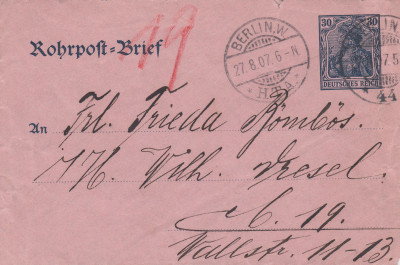 Rohrpost-Brief
19
BERLIN, W.
27.8.07. 6-N.
* H.T.A. *
30 30
DEUTSCHES REICH
LIN
7.5
44
An Frl. Frieda Römbös.
Wilh. Dresel.
C. 19.
Wallstr. 11-13.